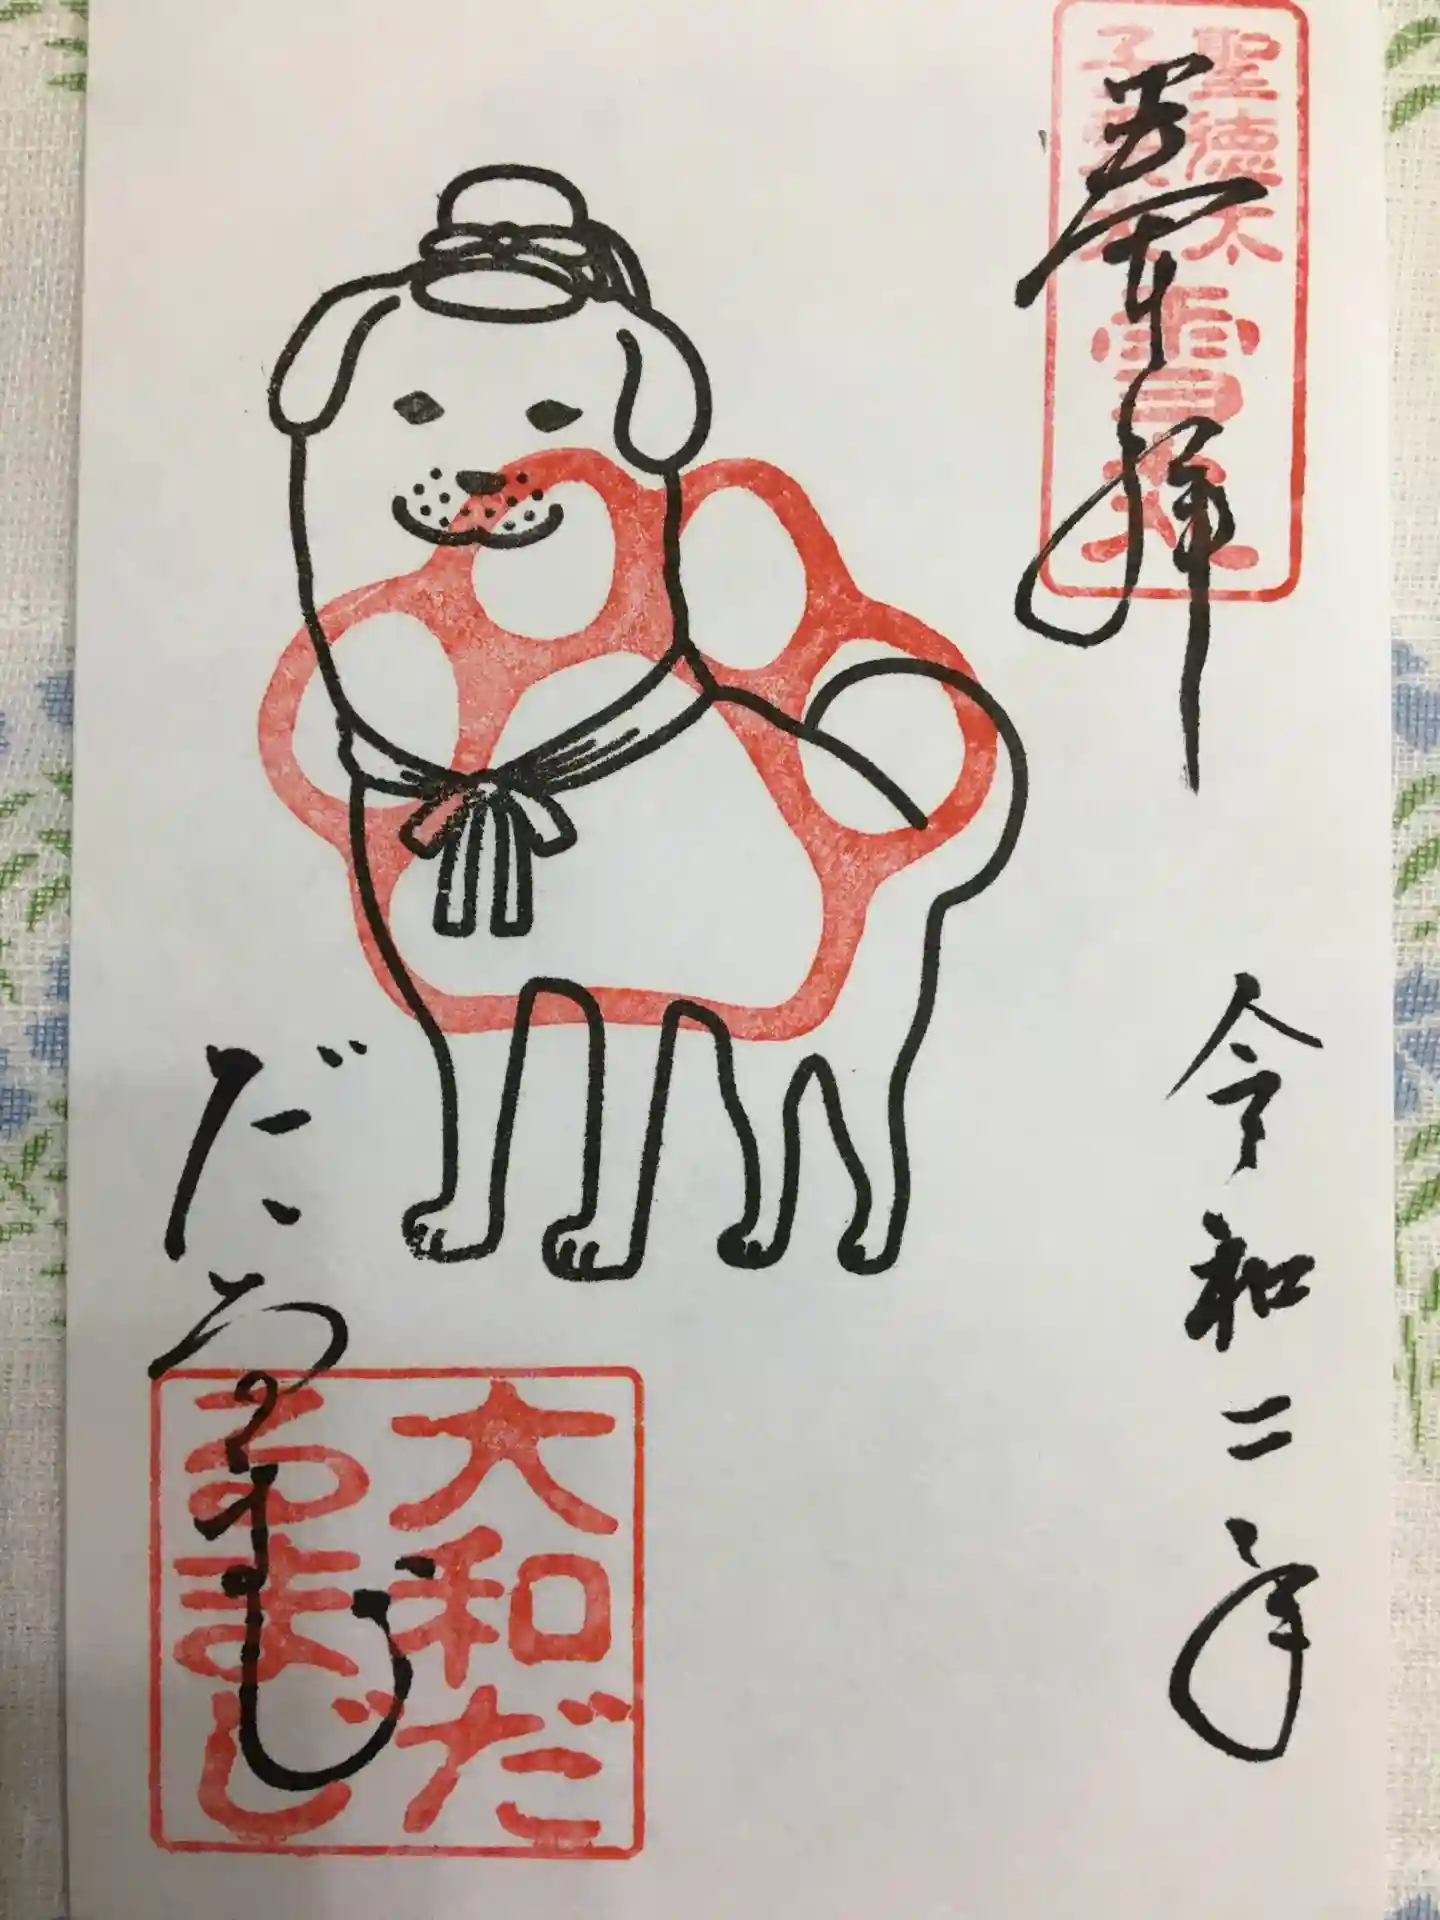 聖徳太
子愛犬
雪丸
奉拝
令和二年
だるまじ
大和だ
るまじ